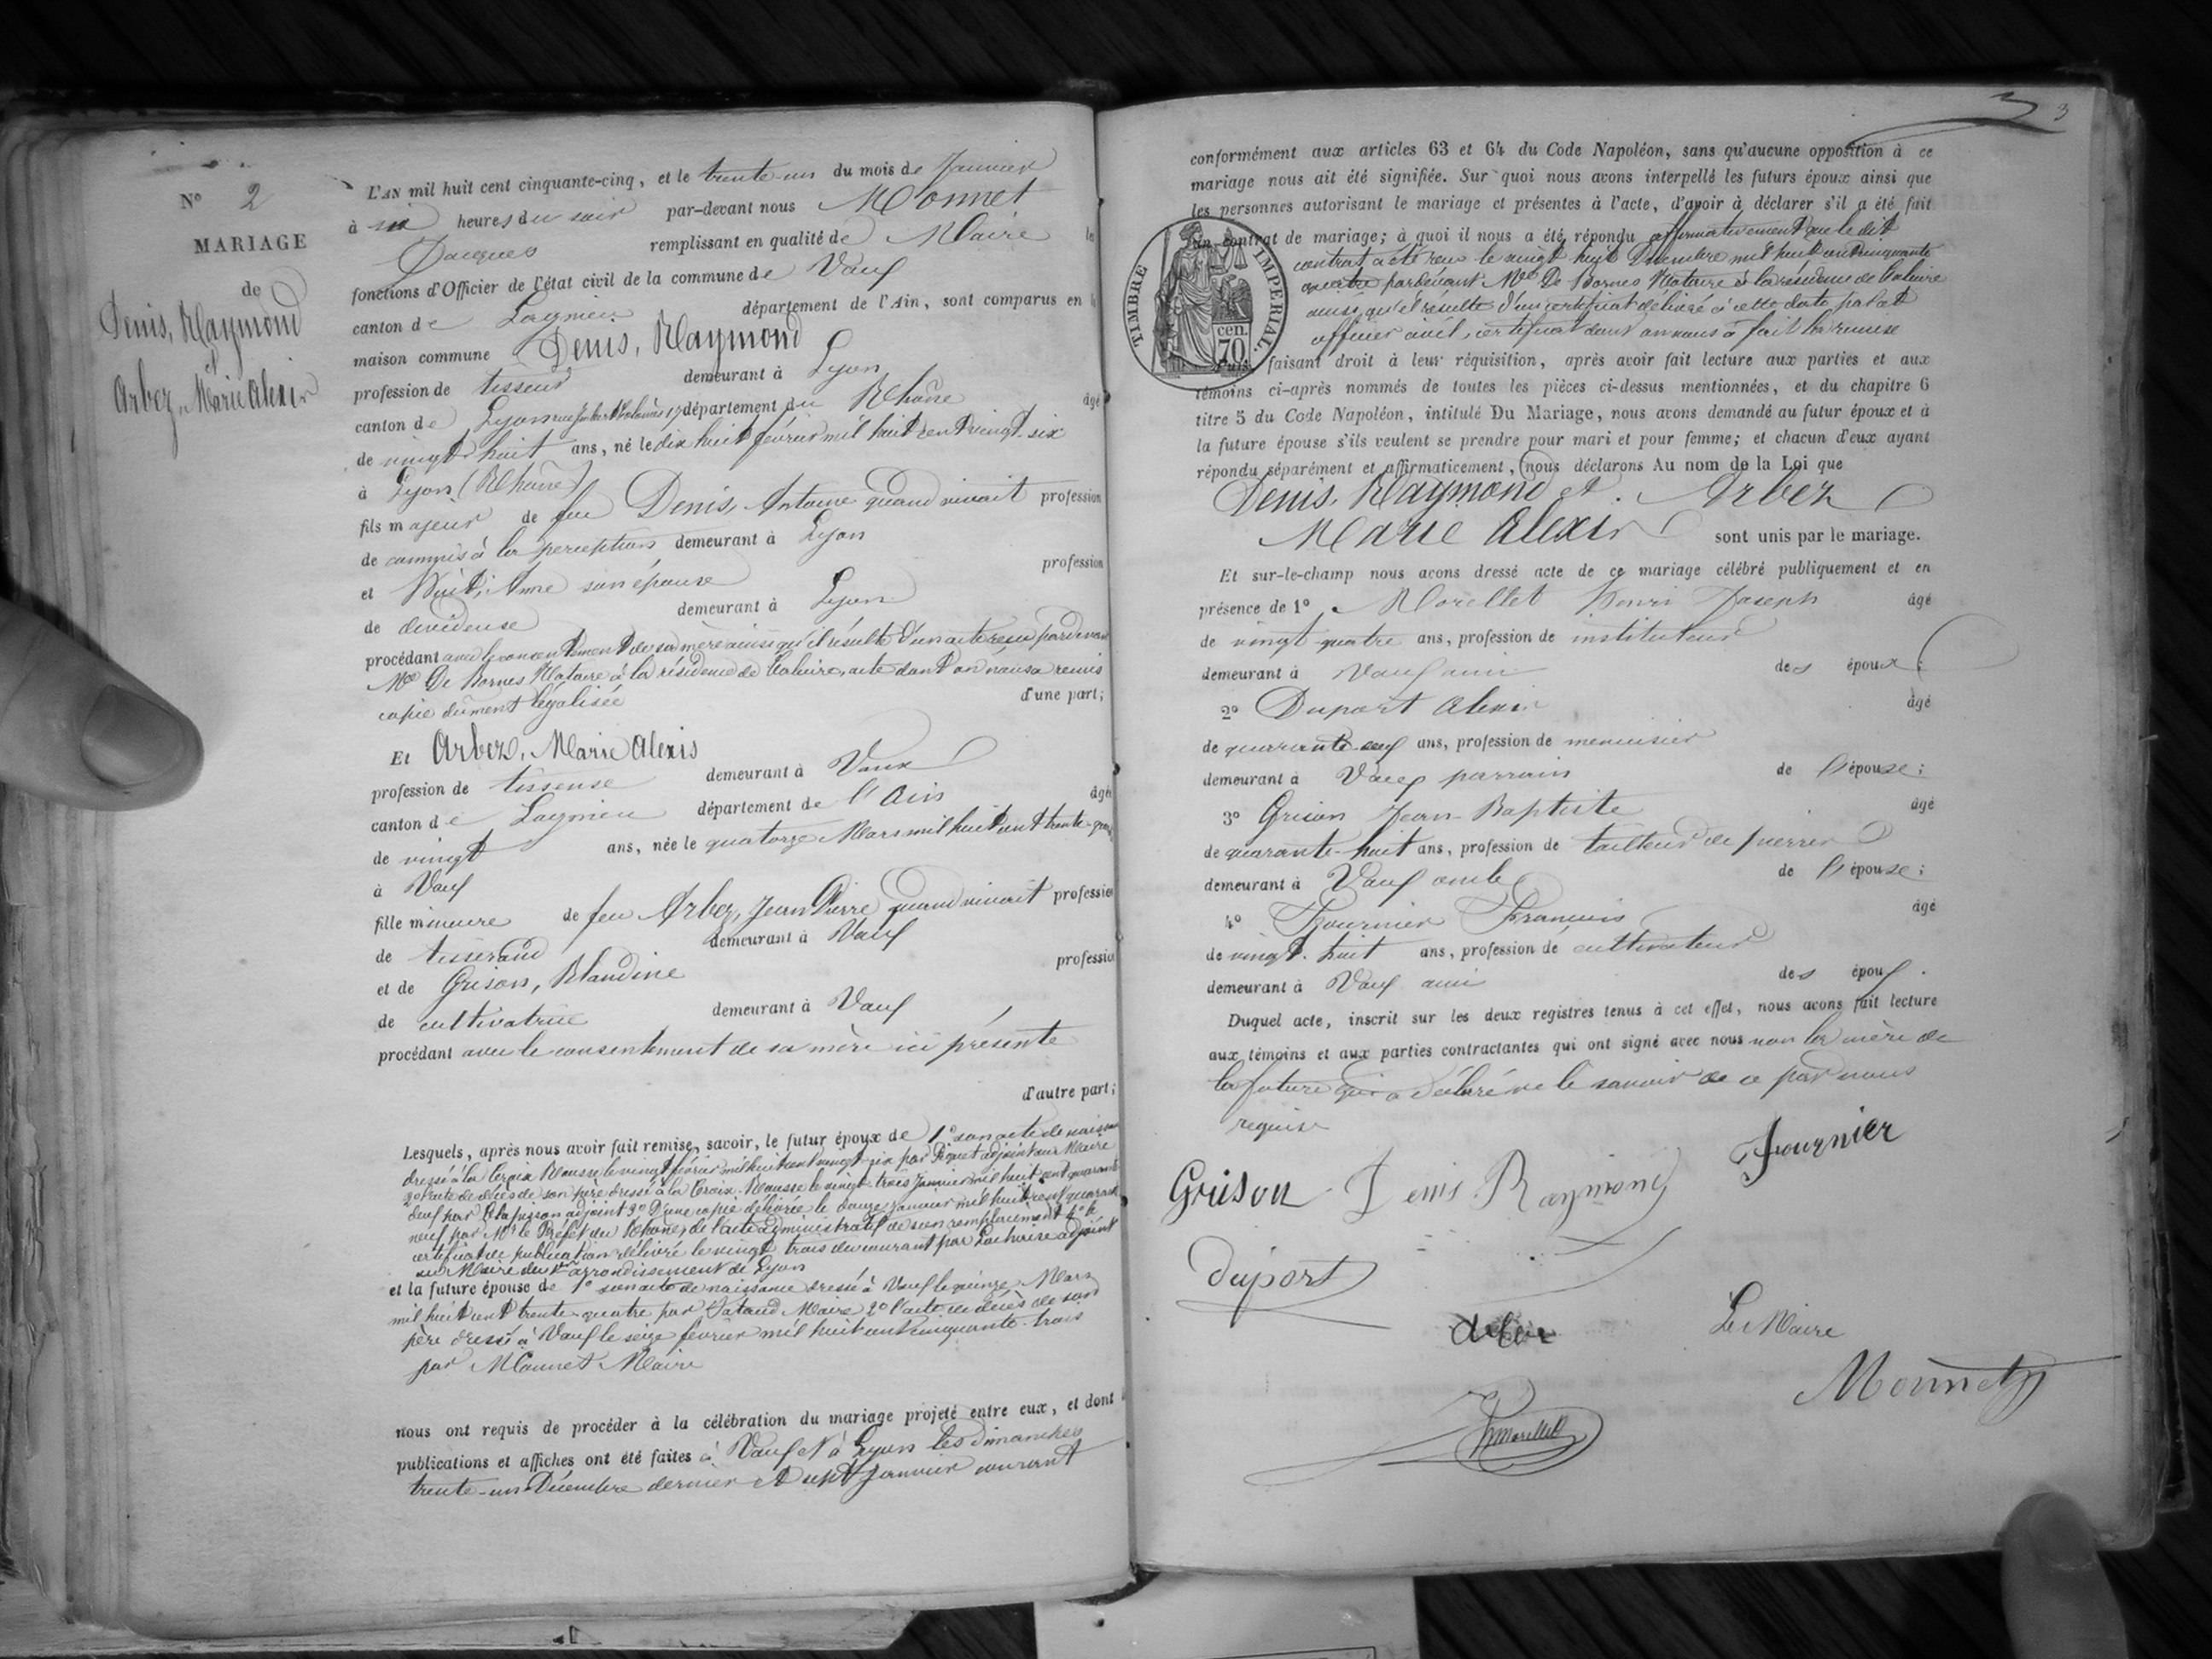 3
Nº 2
MARIAGE
de
Denis, Raymond
et
Arbez, Marie Alexis
L'AN mil huit cent cinquante-cinq, et le trente-un du mois de Janvier
à six heures du soir par-devant nous Monnet
Jacques remplissant en qualité de Maire le
fonctions d'Officier de l'état civil de la commune de Vaux
canton de Lagnieu département de l'Ain, sont comparus en l
maison commune Denis, Raymond
profession de tisseur demeurant à Lyon
canton de Lyon département du Rhône âgé
de vingt-huit ans, né le dix huit février mil huit cent vingt-six
à Lyon (Rhône)
fils majeur de feu Denis, Antoine quand vivait profession
de commis à la perception demeurant à Lyon
et Anne son épouse profession
de devideuse demeurant à Lyon
procédant avec le consentement de sa mère ainsi qu'il résulte d'un acte reçu pardevant
Me De Bornes Notaire à la résidence de Caluire, acte dont on nous a remis
copie dûment légalisée d'une part;
Et Arbez, Marie Alexis
profession de tisseuse demeurant à Vaux
canton de Lagnieu département de l'Ain âgée
de vingt ans, née le quatorze Mars mil huit cent trente-quatre
à Vaux
fille mineure de feu Arbez, Jean Pierre quand vivait profession
de tisserand demeurant à Vaux
et de Grison, Blandine profession
de cultivatrice demeurant à Vaux
procédant avec le consentement de sa mère ici présente
d'autre part;
Lesquels, après nous avoir fait remise, savoir, le futur époux de 1º son acte de naissance
dressé à la Croix Rousse le vingt février mil huit cent vingt-six par Piquet adjoint au Maire
2º l'acte de décès de son père dressé à la Croix-Rousse le vingt-trois Janvier mil huit cent quarante
neuf par adjoint 3º D'une copie délivrée le douze janvier mil huit cent quarante
neuf par Mr le Préfet du Rhône, de l'acte administratif de son remplacement 4º le
certificat de publication délivré le vingt trois du courant par adjoint
au Maire du arrondissement de Lyon
et la future épouse de 1º son acte de naissance dressé à Vaux le quinze Mars
mil huit cent trente-quatre par Maire 2º l'acte de décès de son
père dressé à Vaux le seize février mil huit cent cinquante-trois
par Monnet Maire
nous ont requis de procéder à la célébration du mariage projeté entre eux, et dont
publications et affiches ont été faites à Vaux et à Lyon les dimanches
trente-un Décembre dernier et sept Janvier courant
3
conformément aux articles 63 et 64 du Code Napoléon, sans qu'aucune opposition à ce
mariage nous ait été signifiée. Sur quoi nous avons interpellé les futurs époux ainsi que
les personnes autorisant le mariage et présentes à l'acte, d'avoir à déclarer s'il a été fait
un contrat de mariage; à quoi il nous a été répondu affirmativement que le dit
contrat a été reçu le vingt huit Décembre mil huit cent cinquante
quatre pardevant Me De Bornes Notaire à la résidence de Caluire
ainsi qu'il résulte d'un certificat délivré à cette date par cet
officier civil, certificat dont on nous a fait la remise
TIMBRE IMPERIAL. 70 cen.
Puis, faisant droit à leur réquisition, après avoir fait lecture aux parties et aux
témoins ci-après nommés de toutes les pièces ci-dessus mentionnées, et du chapitre 6
titre 5 du Code Napoléon, intitulé Du Mariage, nous avons demandé au futur époux et à
la future épouse s'ils veulent se prendre pour mari et pour femme; et chacun d'eux ayant
répondu séparément et affirmativement, nous déclarons Au nom de la Loi que
Denis, Raymond et Arbez
Marie Alexis sont unis par le mariage.
Et sur-le-champ nous avons dressé acte de ce mariage célébré publiquement et en
présence de 1º Morellet Henri Joseph âgé
de vingt quatre ans, profession de instituteur
demeurant à Vaux ami des époux;
2º Duport Alexis âgé
de quarante-neuf ans, profession de menuisier
demeurant à Vaux parrain de l'épouse;
3º Grison Jean-Baptiste âgé
de quarante-huit ans, profession de tailleur de pierres
demeurant à Vaux oncle de l'épouse;
4º Fournier François âgé
de vingt-huit ans, profession de cultivateur
demeurant à Vaux ami des époux.
Duquel acte, inscrit sur les deux registres tenus à cet effet, nous avons fait lecture
aux témoins et aux parties contractantes qui ont signé avec nous non la mère de
la future qui a déclaré ne le savoir de ce par nous
requise
Fournier
Grison Denis Raymond
Duport
Le Maire
Monnet
Hmorellet